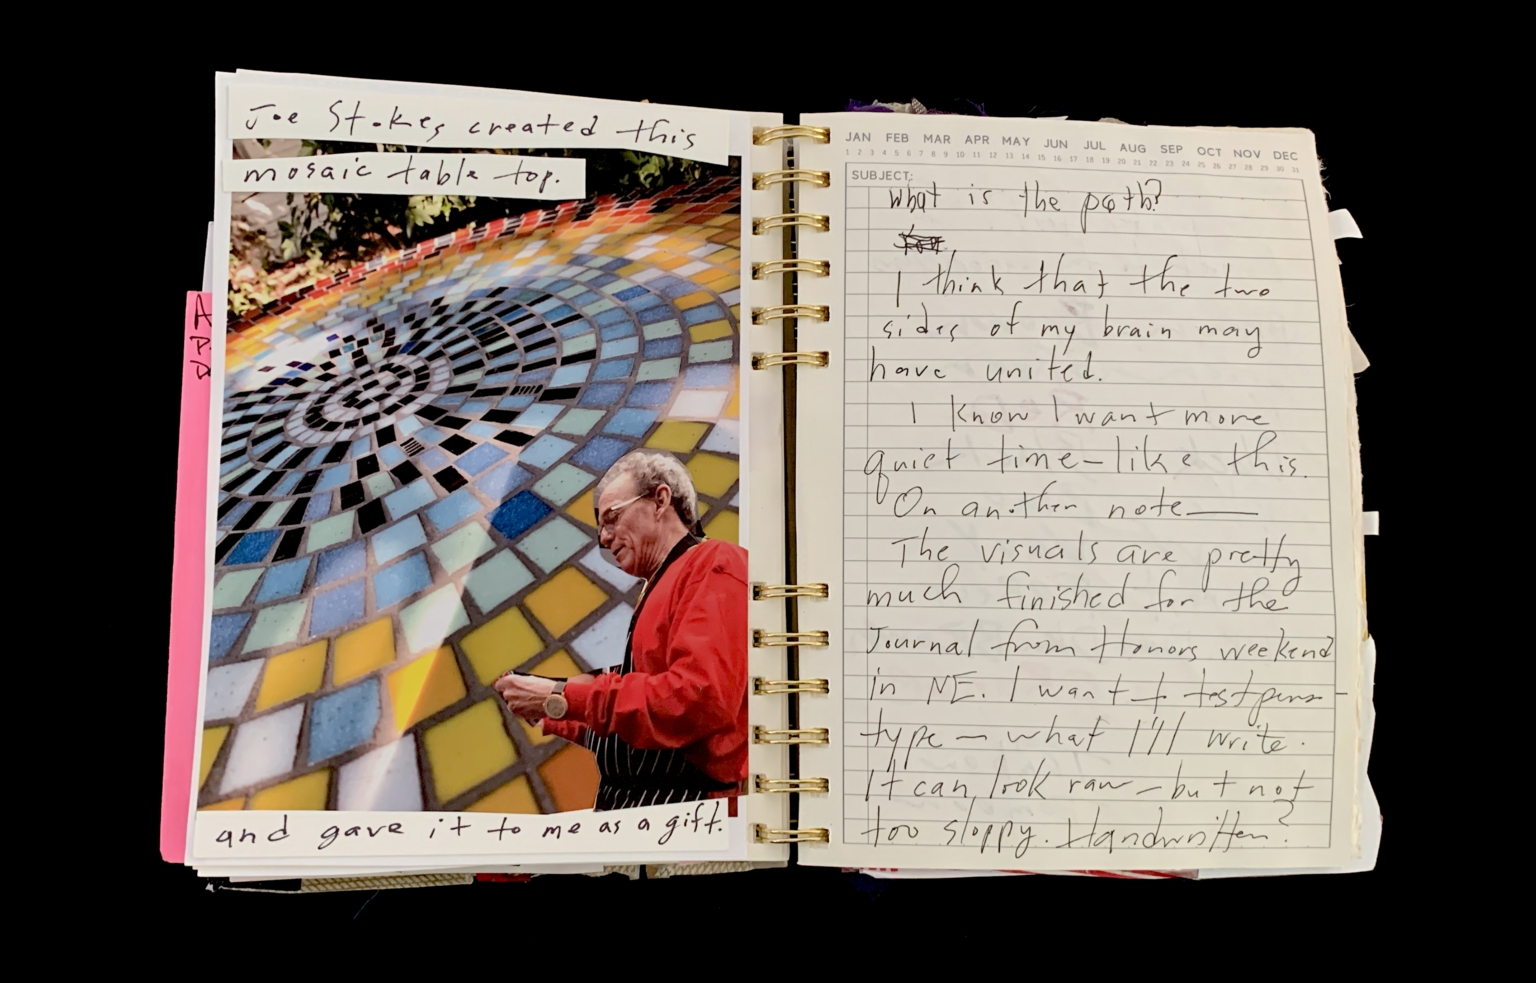 Joe Stokes created this
mosaic table top.
and gave it to me as a gift.
A
P.
D
JAN FEB MAR APR MAY JUN JUL AUG SEP OCT NOV DEC
1 2 3 4 5 6 7 8 9 10 11 12 13 14 15 16 17 18 19 20 21 22 23 24 25 26 27 28 29 30 31
SUBJECT:
What is the path?
I think that the two
sides of my brain may
have united.
I know I want more
quiet time—like this.
On another note—
The visuals are pretty
much finished for the
Journal from Honors weekend
in NE. I want to test pens
type — what I'll write.
It can look raw — but not
too sloppy. Handwritten?